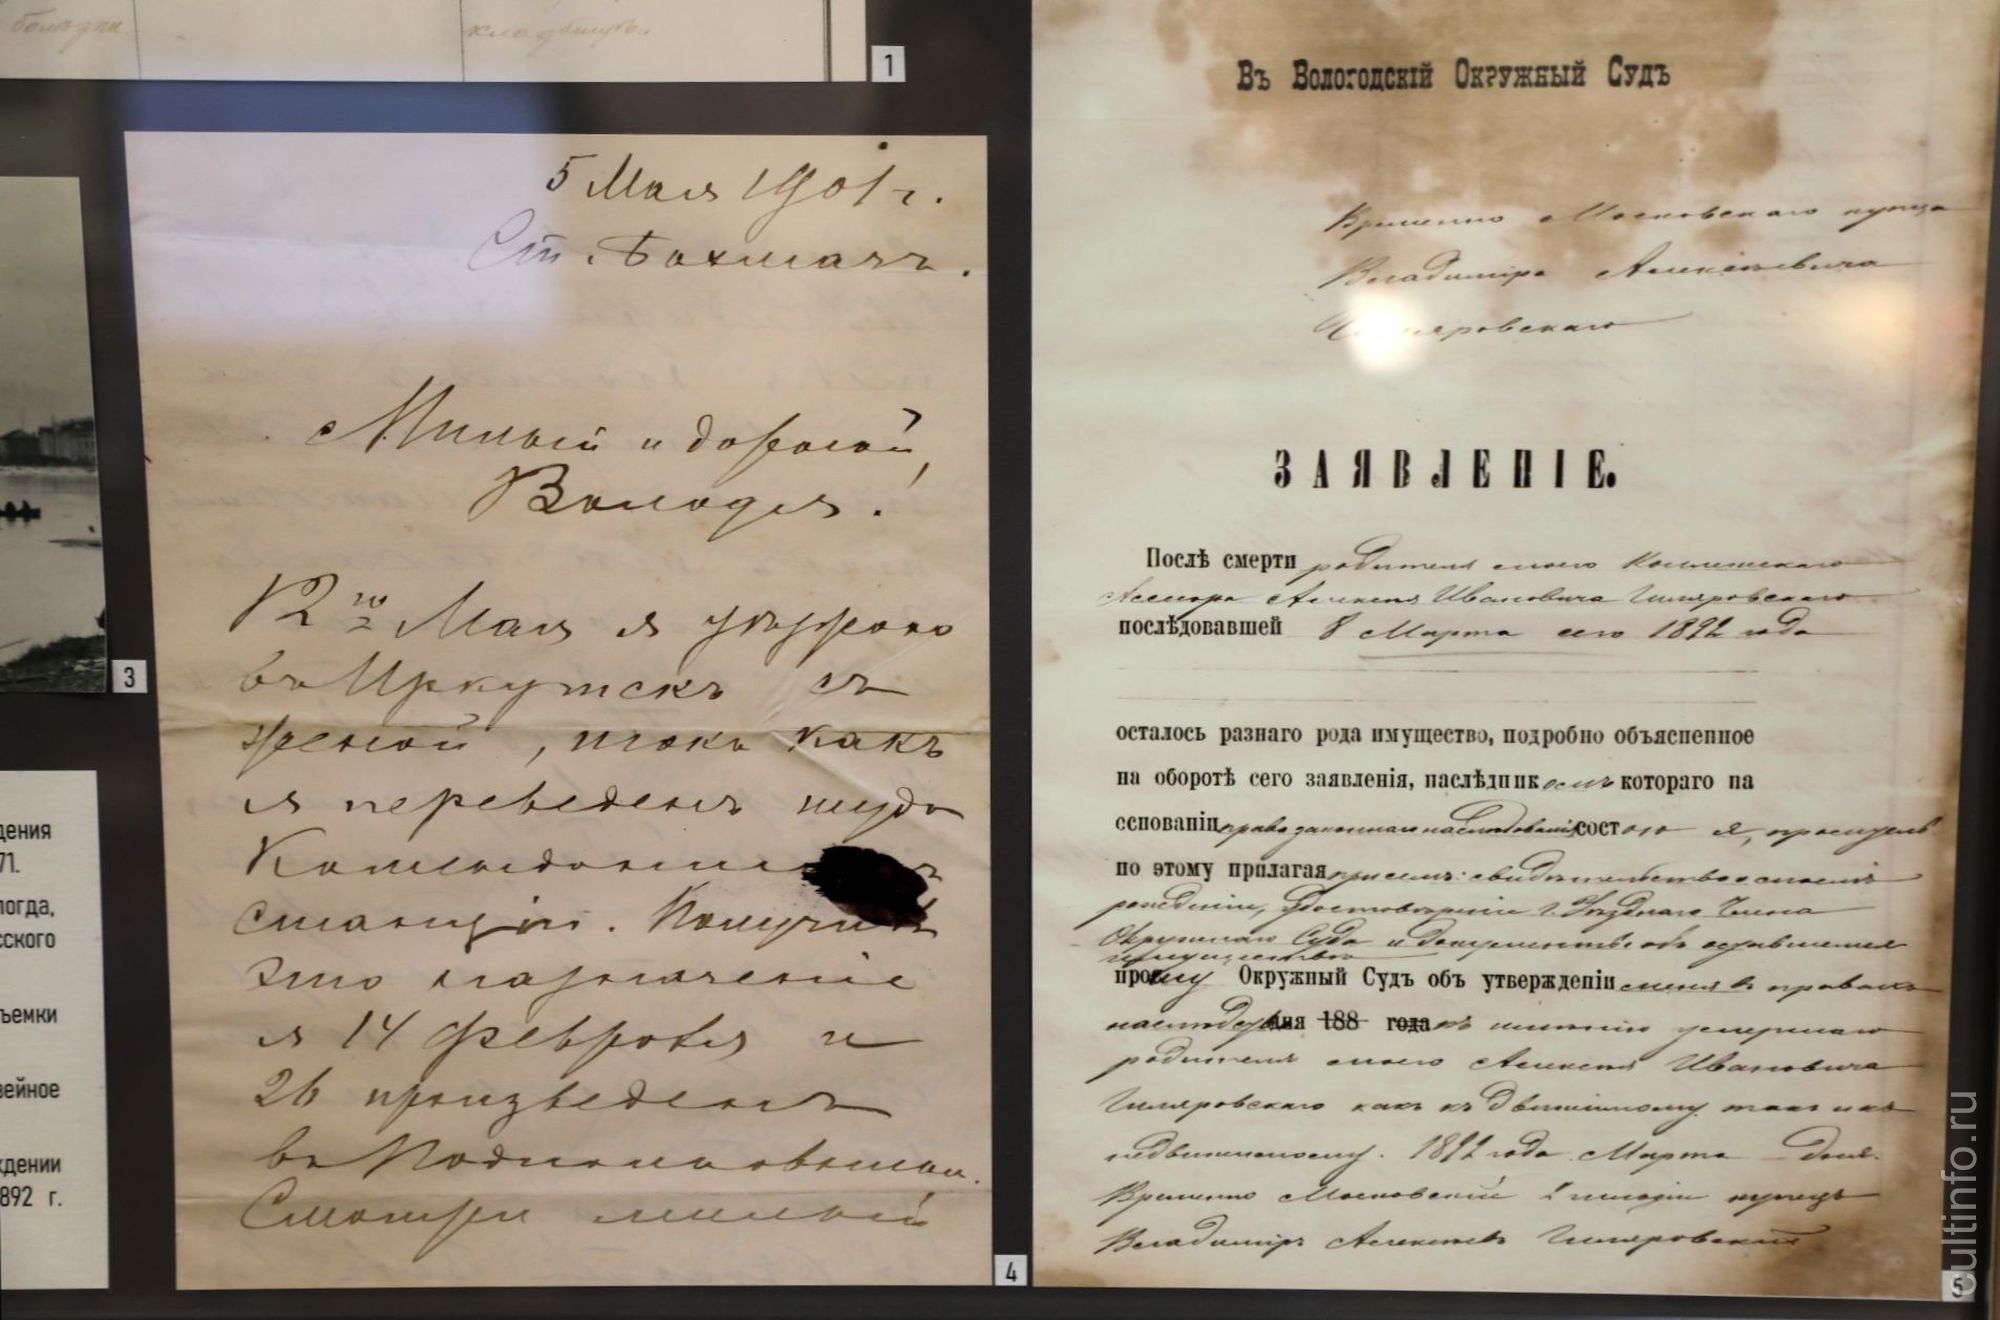 болѣзни
кладбищѣ
1
5 Мая 1901 г.
Ст. Бахмачъ.
Милый и дорогой,
Володя!
12го Мая я уѣзжаю
въ Иркутскъ съ
женой, такъ какъ
я переведенъ туда
Комендантомъ
станціи. Получилъ
это назначеніе
я 14 Февраля и
26 произведенъ
въ Подполковники.
Смотри милый
3
4
дения
71.
логда,
сского
ъемки
вейное
ждении
892 г.
Въ Вологодскій Окружный Судъ
Временно Московскаго купца
Владиміра Алексѣевича
Гиляровскаго
ЗАЯВЛЕНІЕ.
Послѣ смерти родителя моего Коллежскаго
Асесора Алексѣя Ивановича Гиляровскаго
послѣдовавшей 8 Марта сего 1892 года
осталось разнаго рода имущество, подробно объясненное
на оборотѣ сего заявленія, наслѣдникомъ котораго на
основаніи права законнаго наслѣдованія состою я,
по этому прилагая при семъ: свидѣтельство о моемъ
рожденіи, Удостовѣреніе г. Уѣзднаго Члена
Окружнаго Суда и документы объ оставшемся
имуществѣ
прошу Окружный Судъ объ утвержденіи меня въ правахъ
дня 188 года къ имѣнію умершаго
родителя моего Алексѣя Ивановича
Гиляровскаго какъ къ движимому такъ и къ
недвижимому. 1892 года Марта дня.
Временно Московскій 2 гильдіи купецъ
Владиміръ Алексѣевъ Гиляровскій
5
cultinfo.ru